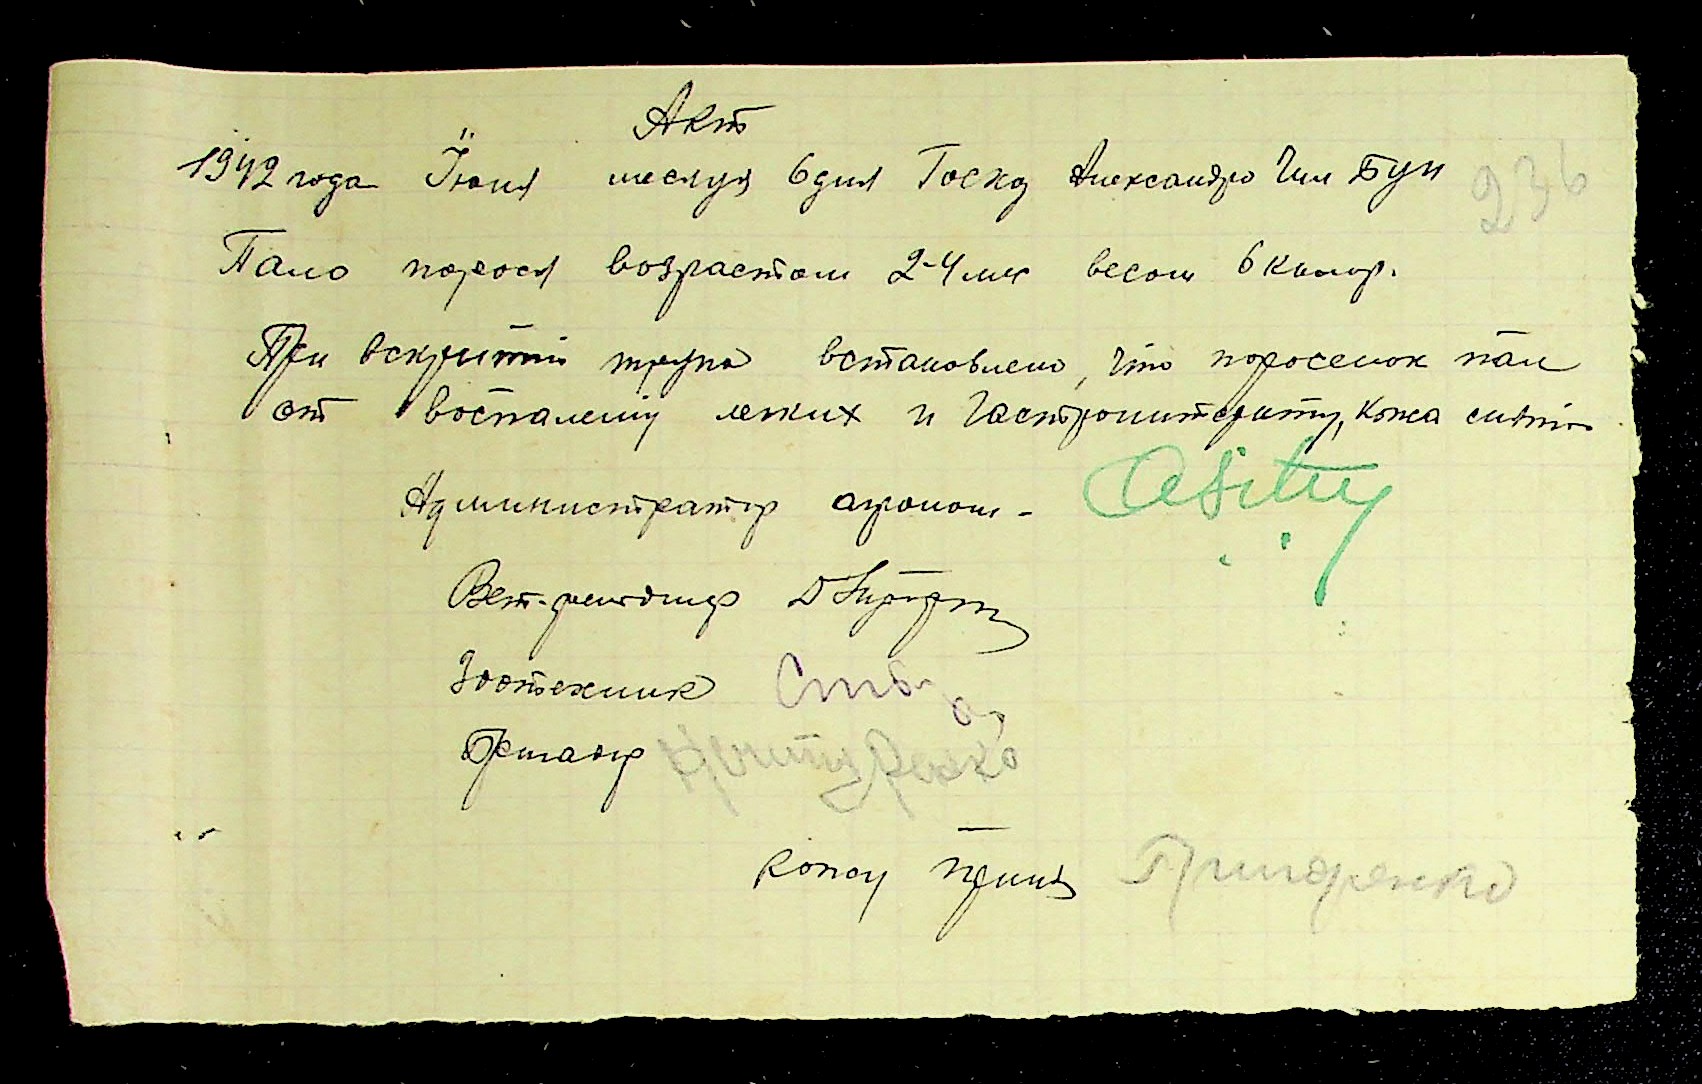 Акт
1942 года Їюня месяця 6 дня Госхоз Александро Ґим Бун
236
Пало порося возрастом 2-4 мес весом 6 килогр.
При вскритии трупа встановлено, что поросенок пал
от воспаления легких и гастроинтериту, кожа снята
Администратор агроном -
Вет-фельдшер
Зоотехник
Бригадир
кожу принял Григоренко